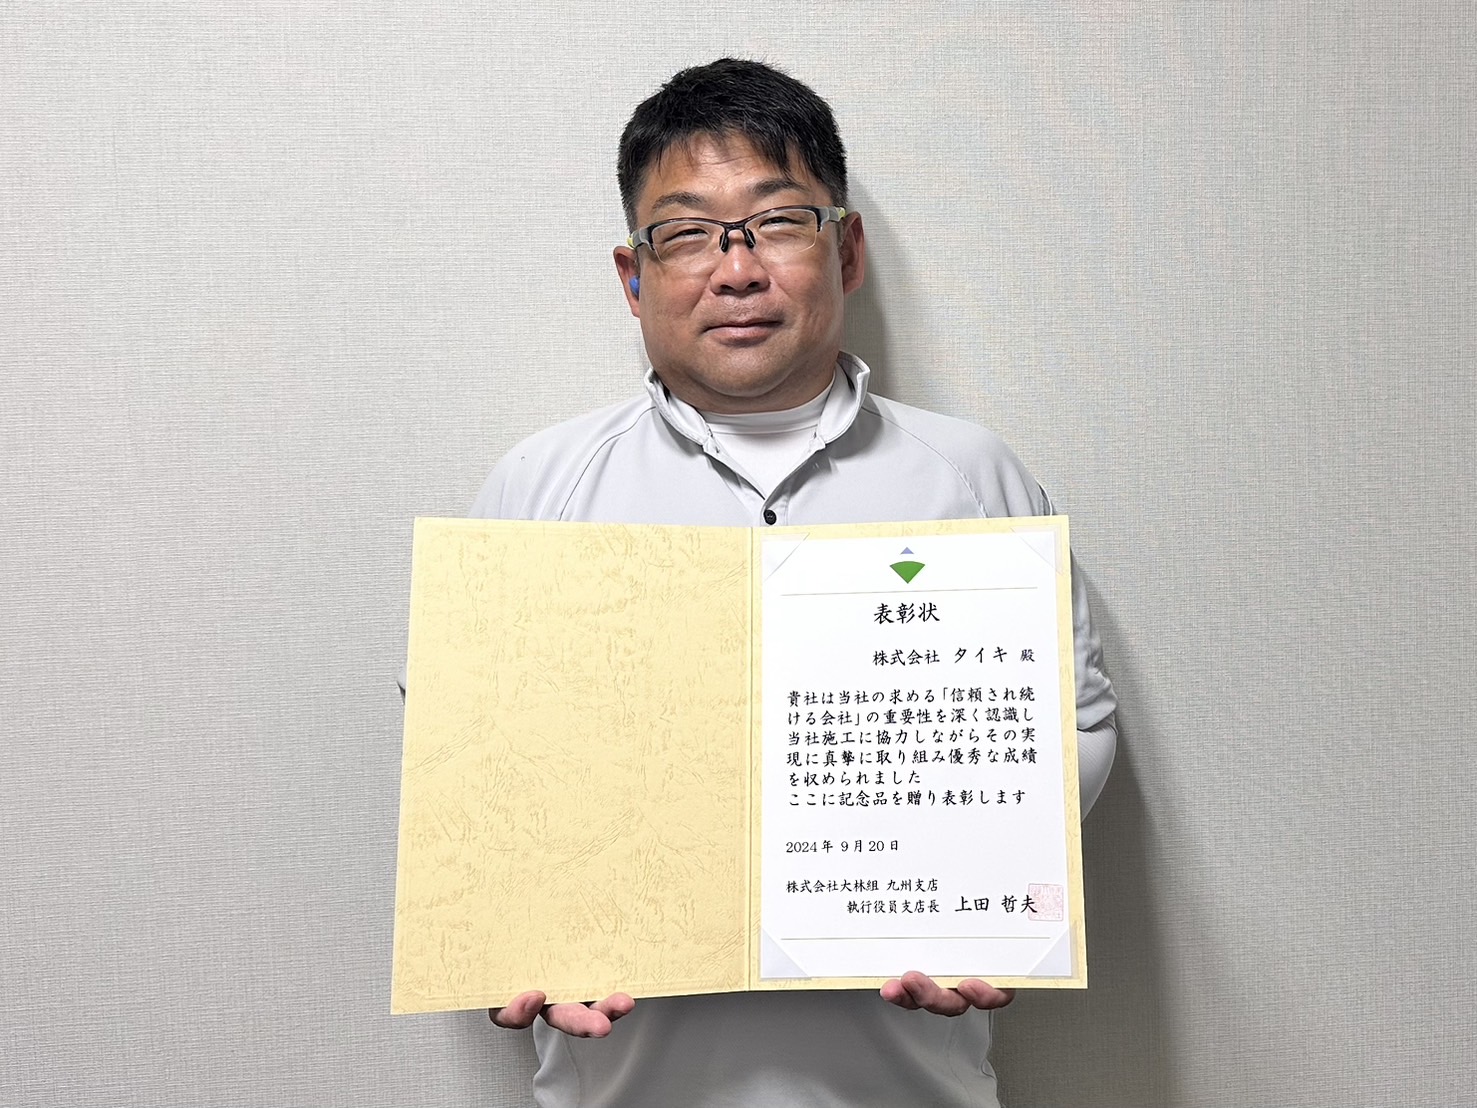 表彰状
株式会社 タイキ 殿
貴社は当社の求める「信頼され続
ける会社」の重要性を深く認識し
当社施工に協力しながらその実
現に真摯に取り組み優秀な成績
を収められました
ここに記念品を贈り表彰します
2024年 9月20日
株式会社大林組 九州支店
執行役員支店長 上田 哲夫